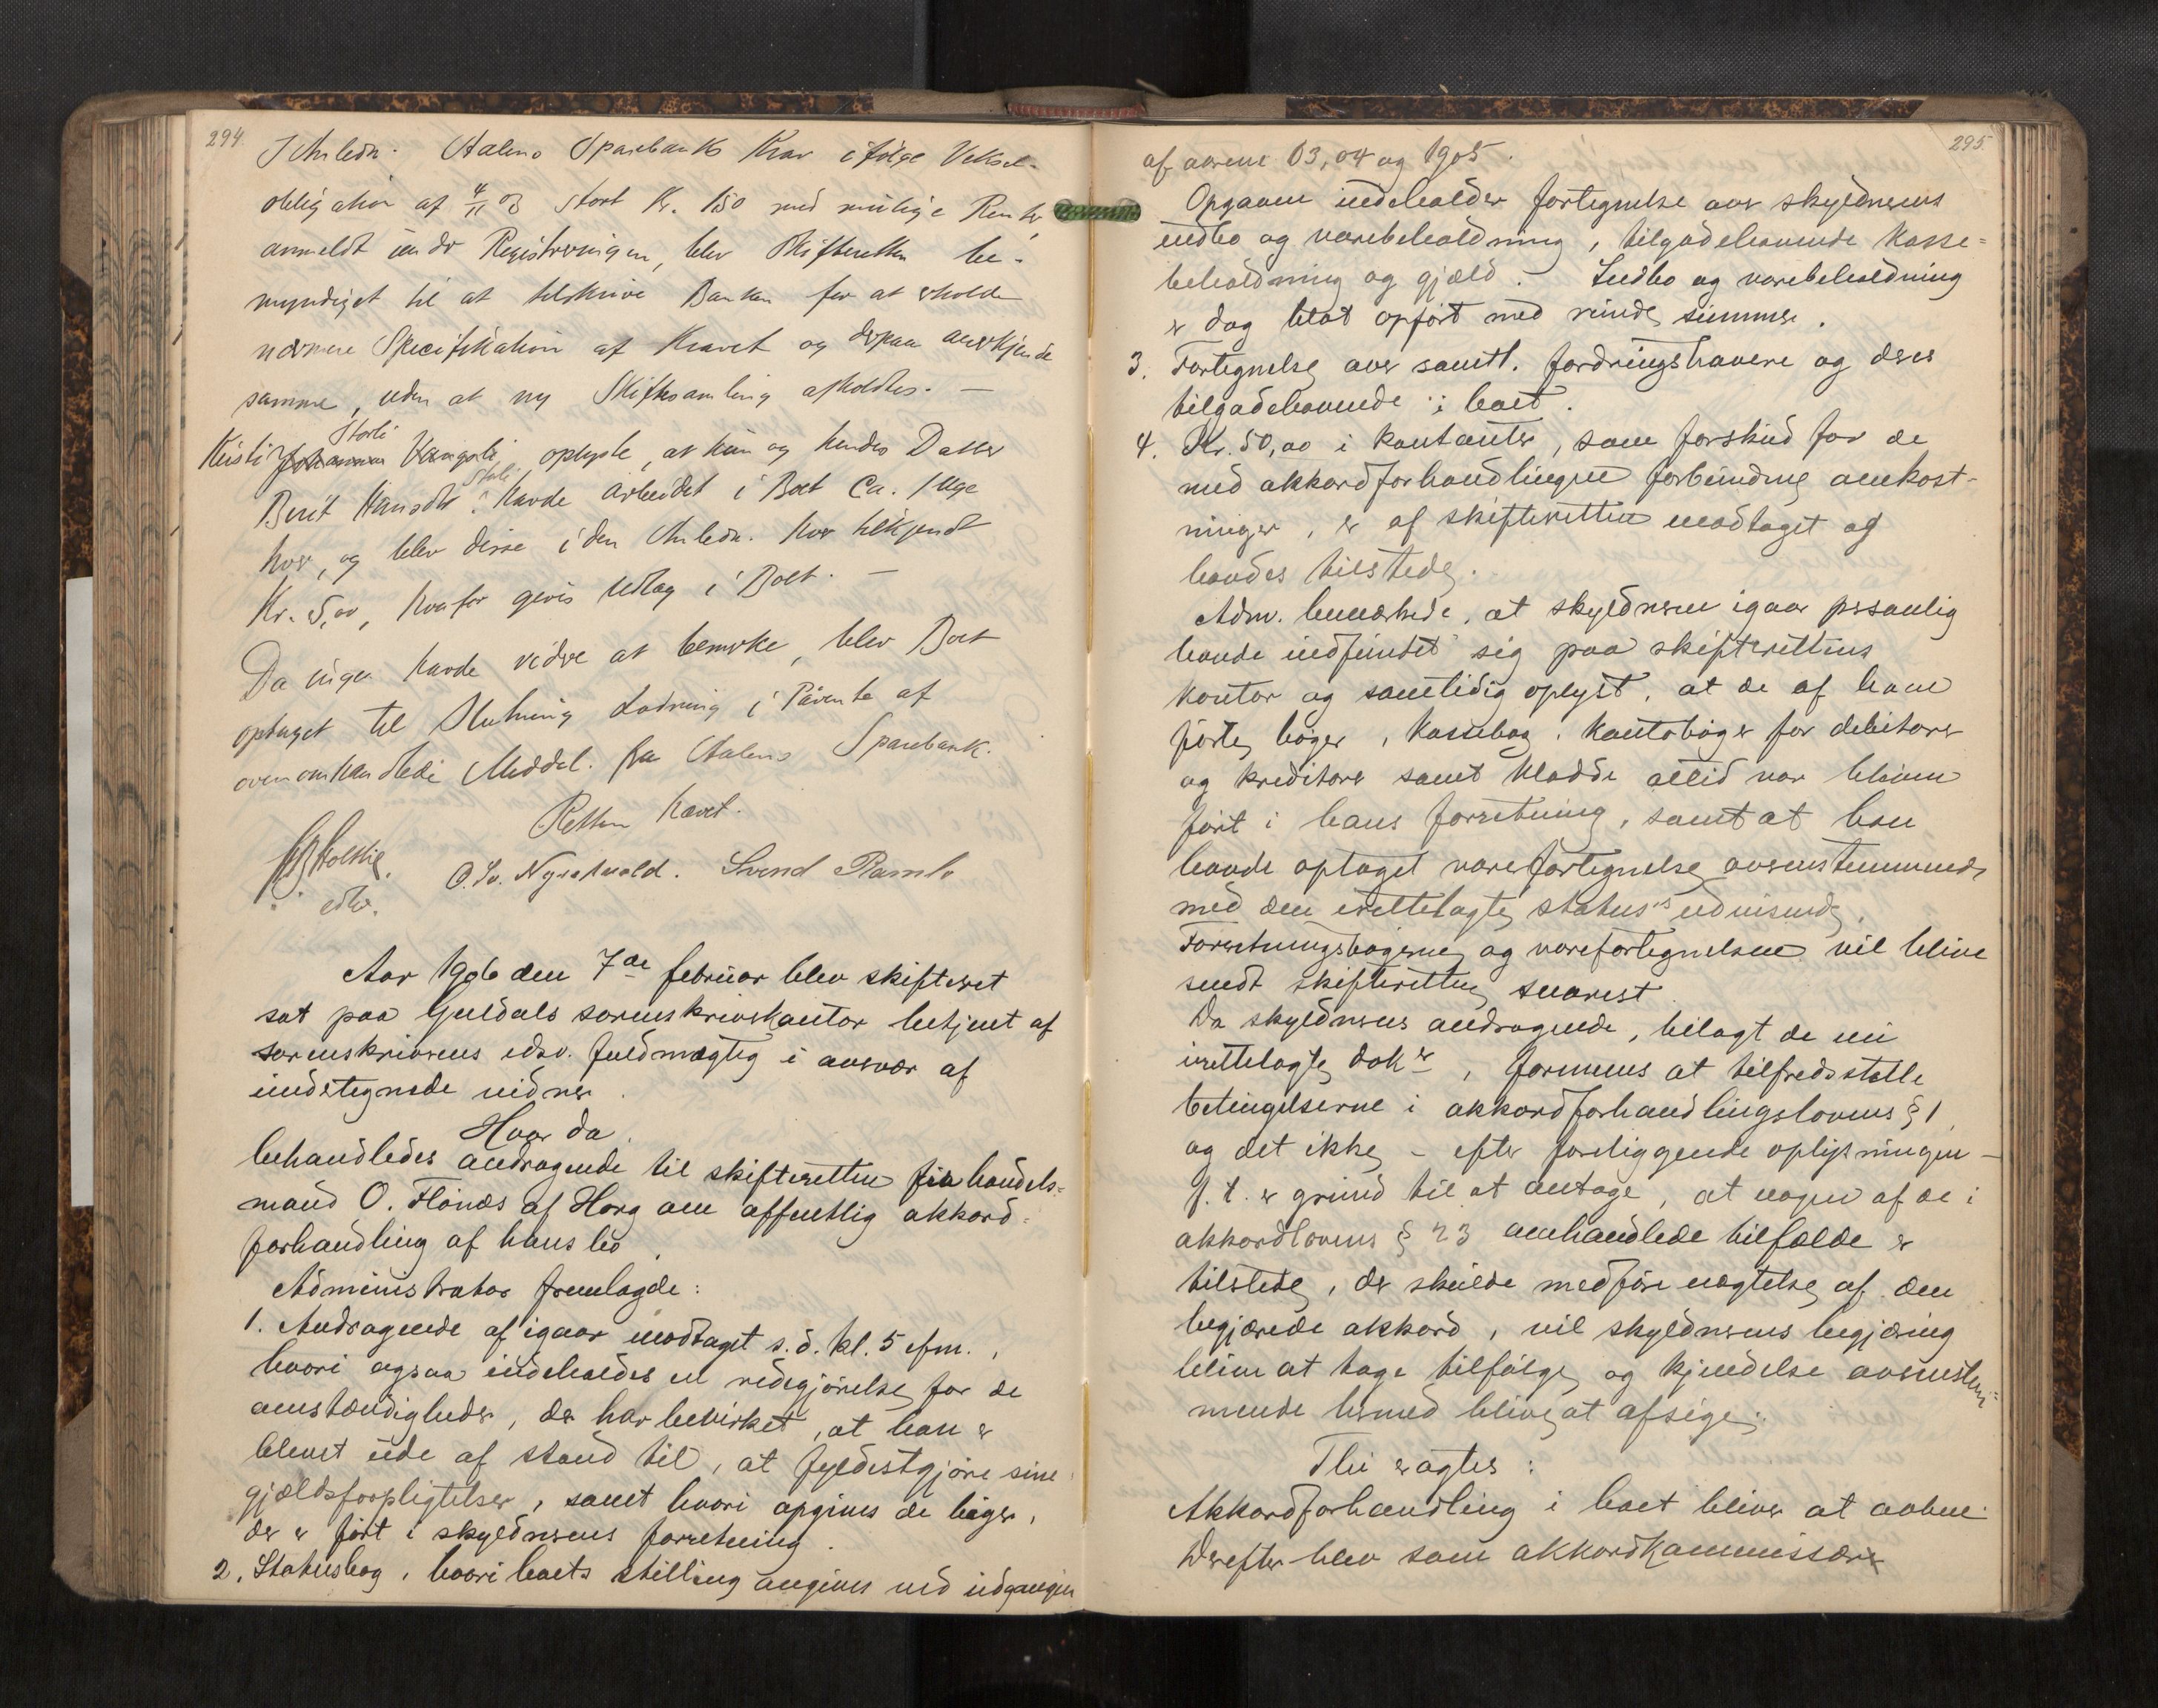 294.
I Anledn. Aalens Sparebanks Krav ifølge Veksel-
obligation af 4/11 03 stort Kr. 150 med mulige Renter,
anmeldt under Registreringen, blev Skifteretten be-
myndiget til at tilskrive Banken for at erholde
nærmere Specifikation af Kravet og derpaa anerkjende
samme, uden at ny Skiftesamling afholdtes. —
Storli
Kirsti Johannes Vangsli, oplyste, at hun og hendes Datter
Storli
Berit Hansdtr. havde arbeidet i Boet ca. 1 Uge
hver, og blev disse i den Anledn. hver tilkjendt
Kr. 5,00, hvorfor gives Udlæg i Boet. —
Da ingen havde videre at bemerke, blev Boet
optaget til Slutning Lodning i Påvente af
ovenomhandlede Meddel. fra Aalens Sparebank.
Retten hævet.
edsv.
O. Sv. Nyrønvold. Svend Ramlo
Aar 1906 den 7de februar blev skifteret
sat paa Guldals sorenskriverkontor betjent af
sorenskriverens edsv. fuldmægtig i overvær af
undertegnede vidner.
Hvor da
behandledes andragende til skifteretten fra handels-
mand O. Flønæs af Horg om offentlig akkord-
forhandling af hans bo.
Administrator fremlagde:
1. Andragende af igaar modtaget s. d. kl. 5 efm.,
hvori ogsaa indeholdes en redegjørelse for de
omstændigheder, der har bevirket, at han er
blevet ude af stand til, at fyldestgjøre sine
gjældsforpligtelser, samt hvori opgives de bøger,
der er ført i skyldnerens forretning.
2. Statusbog, hvori boets stilling angives ved udgangen
295.
af aarene 03, 04 og 1905.
Opgaven indeholder fortegnelse over skyldnerens
indbo og varebeholdning, tilgodehavende kasse-
beholdning og gjæld. Indbo og varebeholdning
er dog blot opført med runde summer.
3. Fortegnelse over samtl. fordringshavere og deres
tilgodehavende i boet.
4. Kr. 50,00 i kontanter, som forskud for de
med akkordforhandlingen forbundne omkost-
ninger, er af skifteretten modtaget og
havdes tilstede.
Adm. bemærkede, at skyldneren igaar personlig
havde indfundet sig paa skifterettens
kontor og samtidig oplyst, at de af ham
førte bøger, kassebog, kontobøger for debitorer
og kreditorer samt kladde altid var bleven
ført i hans forretning, samt at han
havde optaget varefortegnelse overensstemmende
med den irettelagte status's udvisende.
Forretningsbøgerne og varefortegnelsen vil blive
sendt skifteretten snarest.
Da skyldnerens andragende, bilagt de nu
irettelagte dok.er, formenes at tilfredsstille
betingelserne i akkordforhandlingslovens § 1,
og det ikke – efter foreliggende oplysninger –
f. t. er grund til at antage, at nogen af de i
akkordlovens § 23 omhandlede tilfælde er
tilstede, der skulde medføre nægtelse af den
begjærede akkord, vil skyldnerens begjæring
blive at tage tilfølge, og kjendelse overensstem-
mende hermed blive at afsige:
Thi eragtes:
Akkordforhandling i boet bliver at aabne.
Derefter blev som akkordkommissærer